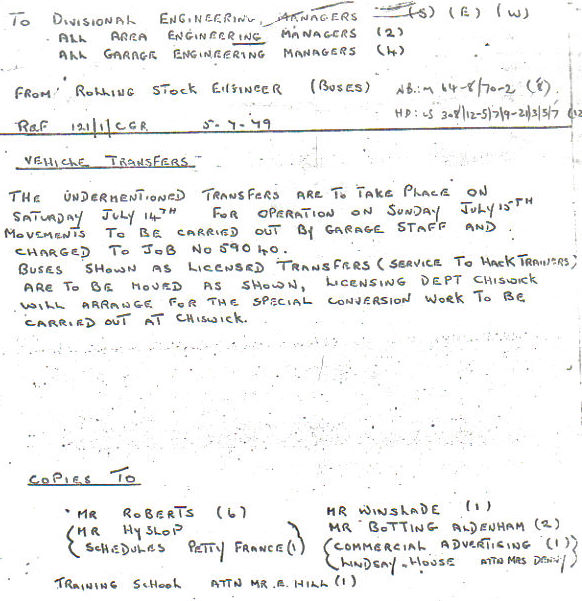 TO DIVISIONAL ENGINEERING, MANAGERS (S) (E) (W)
ALL AREA ENGINEERING MANAGERS (2)
ALL GARAGE ENGINEERING MANAGERS (4)
FROM ROLLING STOCK ENGINEER (BUSES) NB: M 64-8/70-2 (8)
HD: LS 308/12-5/7/9-21/3/5/7 (12
REF 121/1/CGR 5-7-79
VEHICLE TRANSFERS
THE UNDERMENTIONED TRANSFERS ARE TO TAKE PLACE ON
SATURDAY JULY 14TH FOR OPERATION ON SUNDAY JULY 15TH
MOVEMENTS TO BE CARRIED OUT BY GARAGE STAFF AND
CHARGED TO JOB No 59040.
BUSES SHOWN AS LICENSED TRANSFERS (SERVICE TO HACK TRAINERS)
ARE TO BE MOVED AS SHOWN, LICENSING DEPT CHISWICK
WILL ARRANGE FOR THE SPECIAL CONVERSION WORK TO BE
CARRIED OUT AT CHISWICK.
COPIES TO
MR ROBERTS (6) MR WINSLADE (1)
(MR HYSLOP) MR BOTTING ALDENHAM (2)
(SCHEDULES PETTY FRANCE (1)) (COMMERCIAL ADVERTISING (1))
(LINDSAY HOUSE ATTN MRS DENNY)
TRAINING SCHOOL ATTN MR. E. HILL (1)